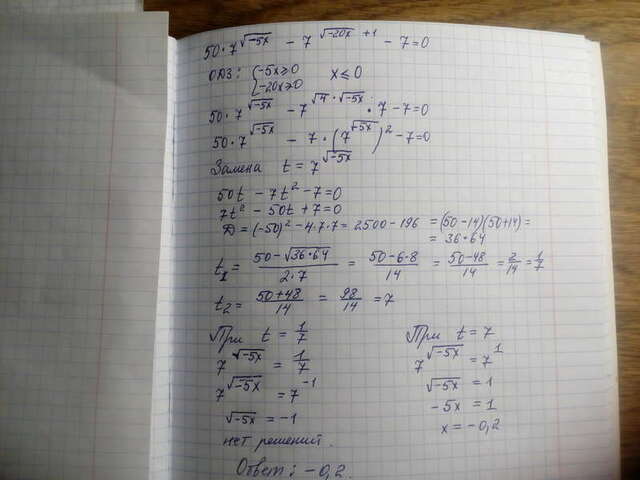 50·7^√-5x - 7^√-20x +1 - 7=0
ОДЗ: { -5x≥0 x≤0
-20x≥0
50·7^√-5x - 7^√4·√-5x ·7 - 7=0
50·7^√-5x - 7·(7^√-5x)² - 7=0
Замена t = 7^√-5x
50t - 7t² - 7=0
7t² - 50t + 7=0
D = (-50)² - 4·7·7 = 2500 - 196 = (50-14)(50+14) =
= 36·64
t₁ = (50 - √36·64)/(2·7) = (50-6·8)/14 = (50-48)/14 = 2/14 = 1/7
t₂ = (50+48)/14 = 98/14 = 7
При t = 1/7
7^√-5x = 1/7
7^√-5x = 7^-1
√-5x = -1
нет решений.
При t = 7
7^√-5x = 7^1
√-5x = 1
-5x = 1
x = -0,2
Ответ: -0,2.